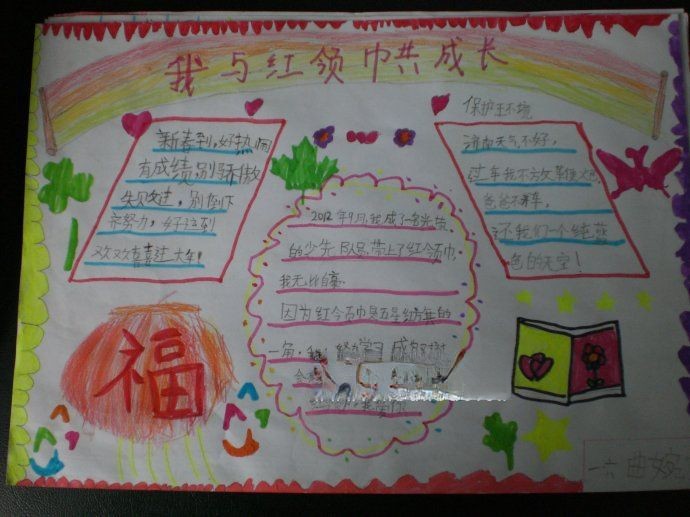 我与红领巾共成长
新春到,好热闹
有成绩别骄傲
失败过,别倒下
齐努力,好运到
欢欢喜喜过大年!
2012年9月,我成了一名光荣
的少先队员,带上了红领巾,
我无比自豪.
因为红领巾是五星红旗的
一角,我 努力学习
保护环境
济南天气不好,
过年我不放
爸爸不开车,
还我们一个纯蓝
色的天空!
福
一六曲婉